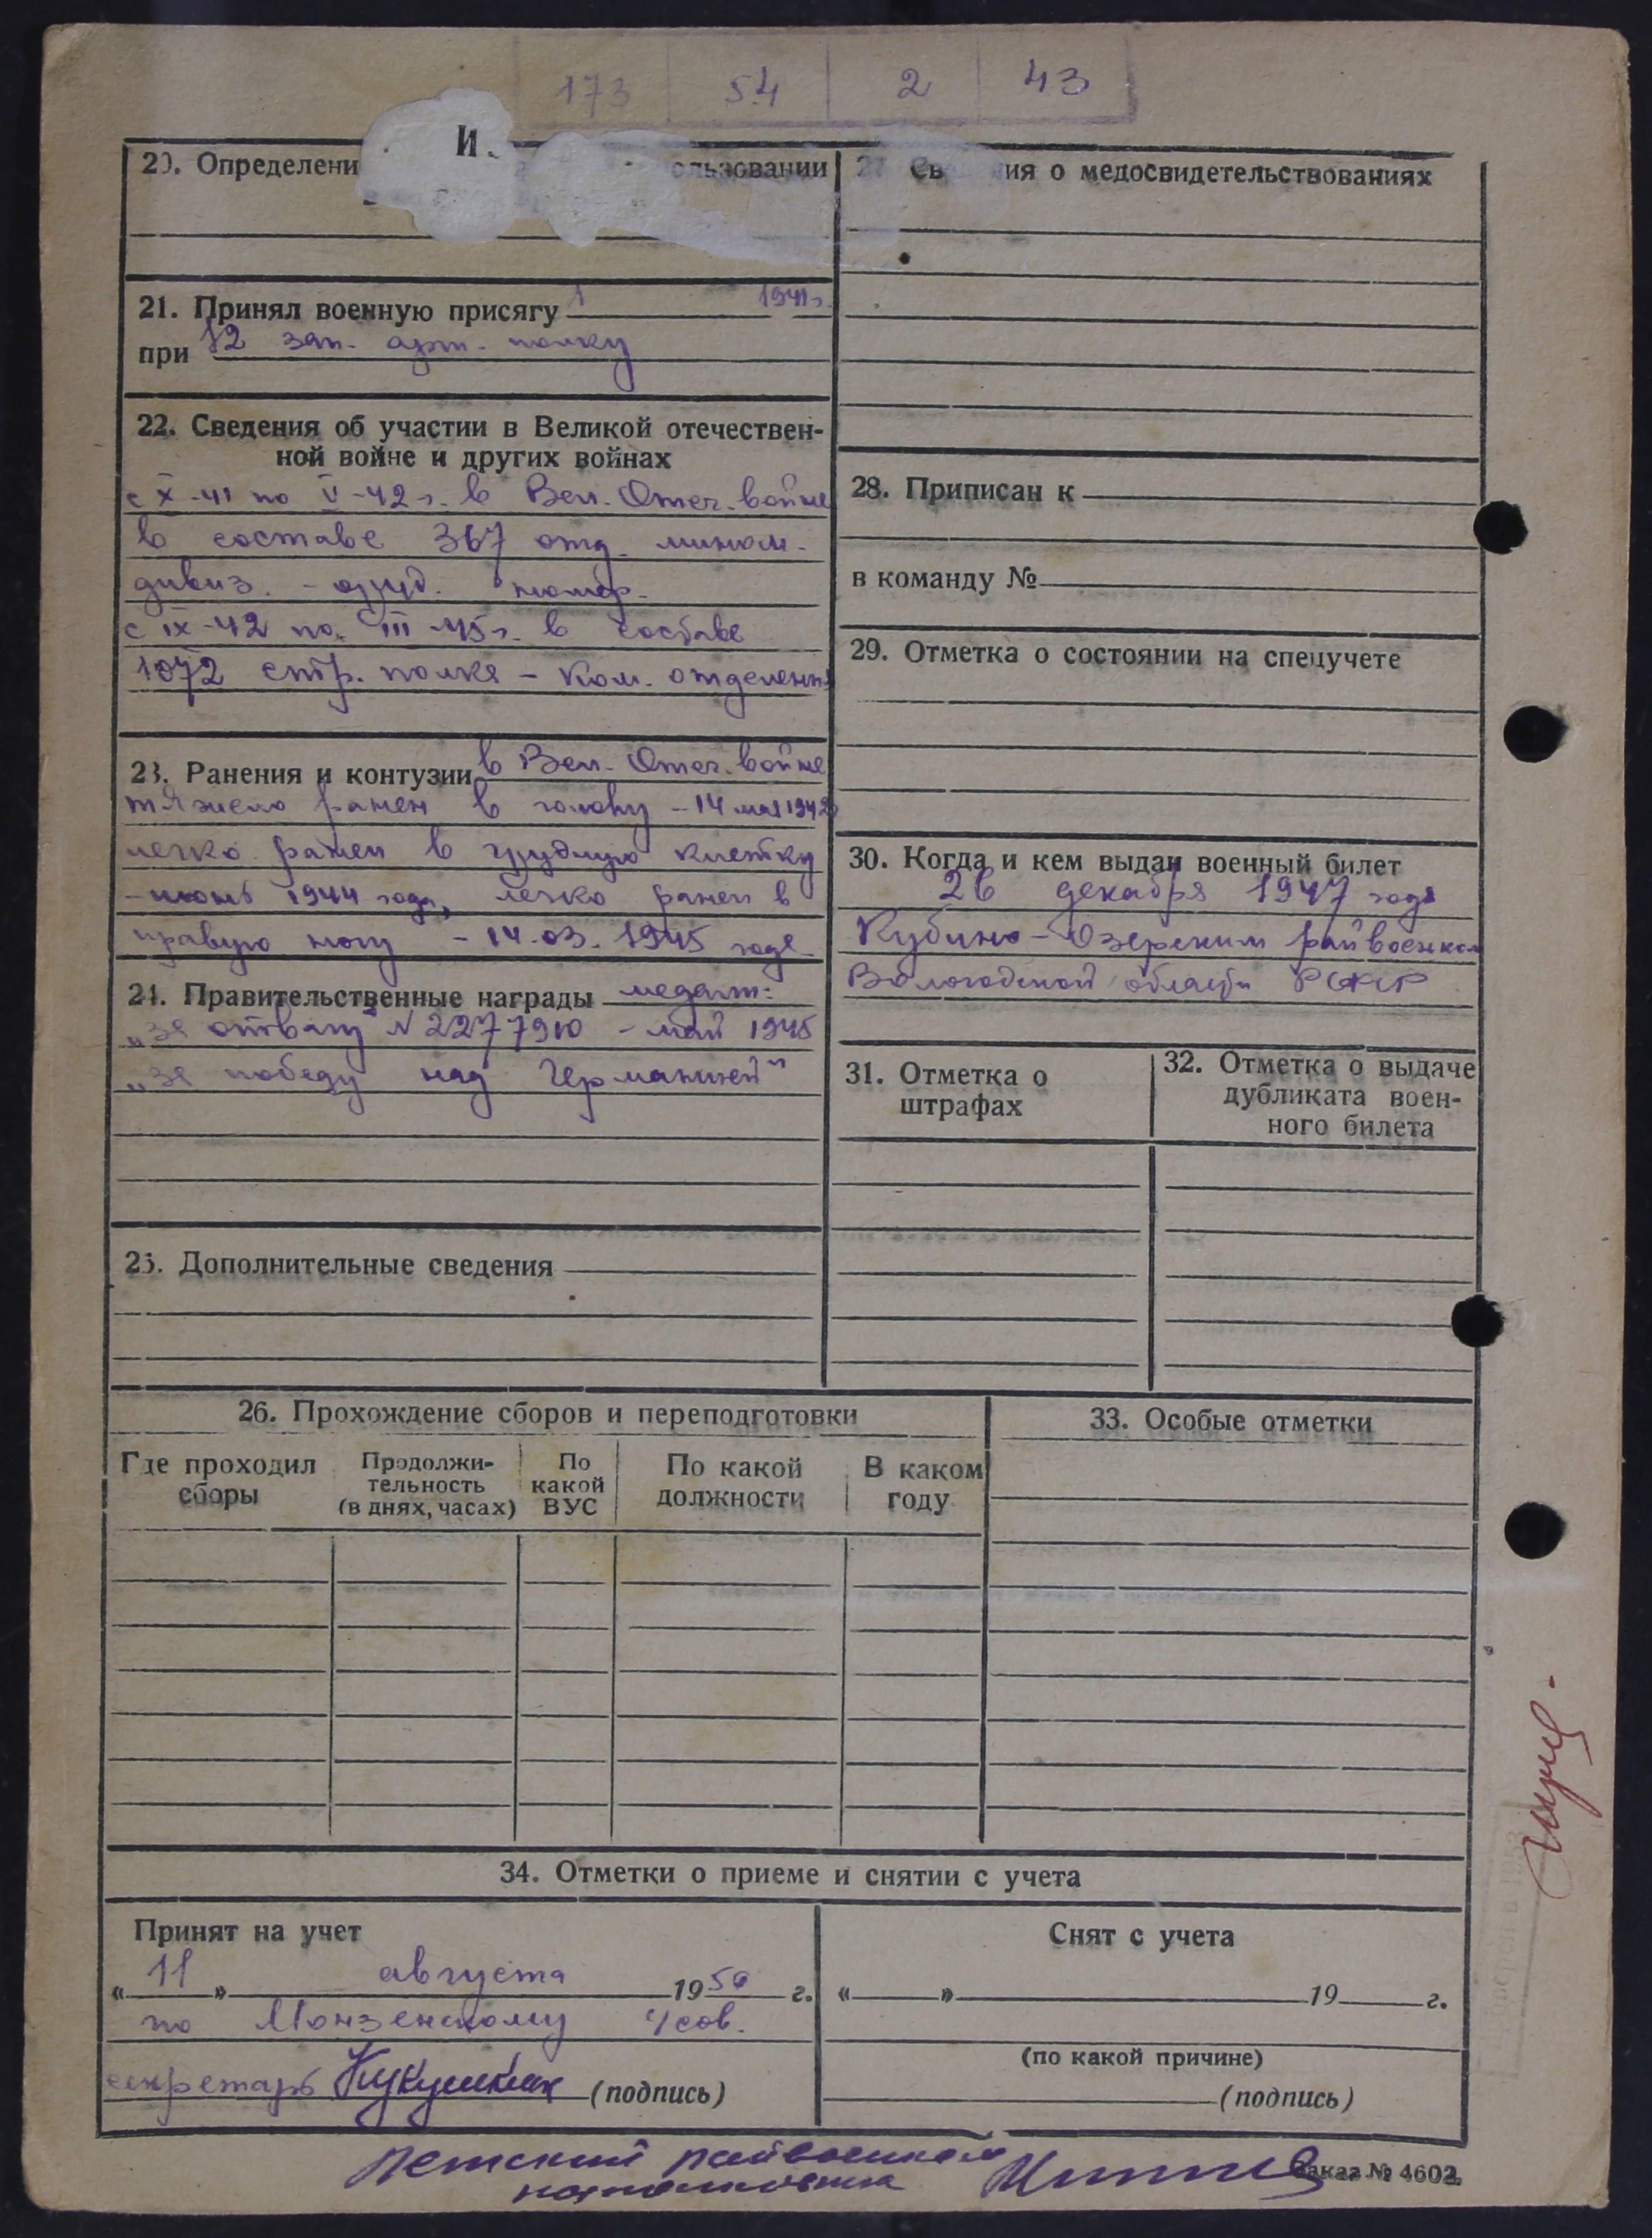 173 54 2 43
И.
20. Определени ользовании
21. Принял военную присягу 1 1941 г.
при 12 зап. арт. полку
22. Сведения об участии в Великой отечествен-
ной войне и других войнах
с X-41 по V-42 г. в Вел. Отеч. войне
в составе 367 отд. мином.
дивиз. - оруд. номер.
с IX-42 по III-45 г. в составе
1072 стр. полка - ком. отделения
23. Ранения и контузии в Вел. Отеч. войне
тяжело ранен в голову - 14 мая 1942
легко ранен в грудную клетку
- июнь 1944 года, легко ранен в
правую ногу - 14.03.1945 года
24. Правительственные награды медали:
„за отвагу" N 2277910 - май 1945
„за победу над Германией"
25. Дополнительные сведения
27. Св ия о медосвидетельствованиях
28. Приписан к
в команду №
29. Отметка о состоянии на спецучете
30. Когда и кем выдан военный билет
26 декабря 1947 года
Кубино-Озерским райвоенком
Вологодской области РСФСР
31. Отметка о
штрафах
32. Отметка о выдаче
дубликата воен-
ного билета
26. Прохождение сборов и переподготовки
Где проходил
сборы
Продолжи-
тельность
(в днях, часах)
По
какой
ВУС
По какой
должности
В каком
году
33. Особые отметки
34. Отметки о приеме и снятии с учета
Принят на учет
« 11 » августа 1950 г.
по Монзенскому с/сов.
секретарь Кукушкин (подпись)
Снят с учета
« » 19 г.
(по какой причине)
(подпись)
райвоенком
Заказ № 4602.